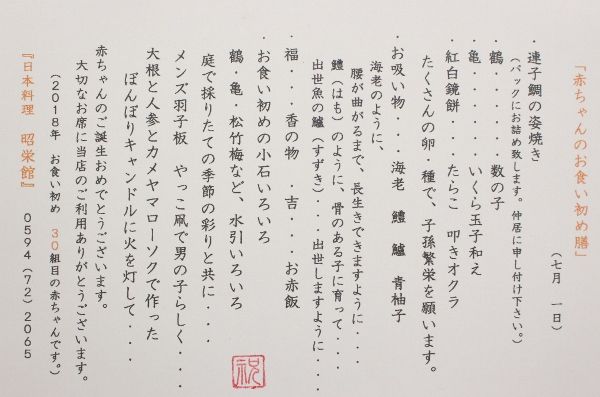 「赤ちゃんのお食い初め膳」
(七月 一日)
・連子鯛の姿焼き
(パックにお詰め致します。仲居に申し付け下さい。)
鶴・・・・・数の子
亀・・・・・いくら玉子和え
・紅白鏡餅・・・・・たらこ 叩きオクラ
たくさんの卵・種で、子孫繁栄を願います。
・お吸い物・・・海老 鱧 鱸 青柚子
海老のように、
腰が曲がるまで、長生きできますように・・・・
鱧(はも)のように、骨のある子に育って・・・・
出世魚の鱸(すずき)・・・出世しますように・・・・
・福・・・・香の物 ・吉・・・お赤飯
・お食い初めの小石いろいろ
鶴・亀・松竹梅など、水引いろいろ
庭で採りたての季節の彩りと共に・・・
メンズ羽子板 やっこ凧で男の子らしく・・・・
大根と人参とカメヤマローソクで作った
ぼんぼりキャンドルに火を灯して・・・・
赤ちゃんのご誕生おめでとうございます。
大切なお席に当店のご利用ありがとうございます。
(2018年 お食い初め 30組目の赤ちゃんです。)
『日本料理 昭栄館』 0594(72)2065
祝